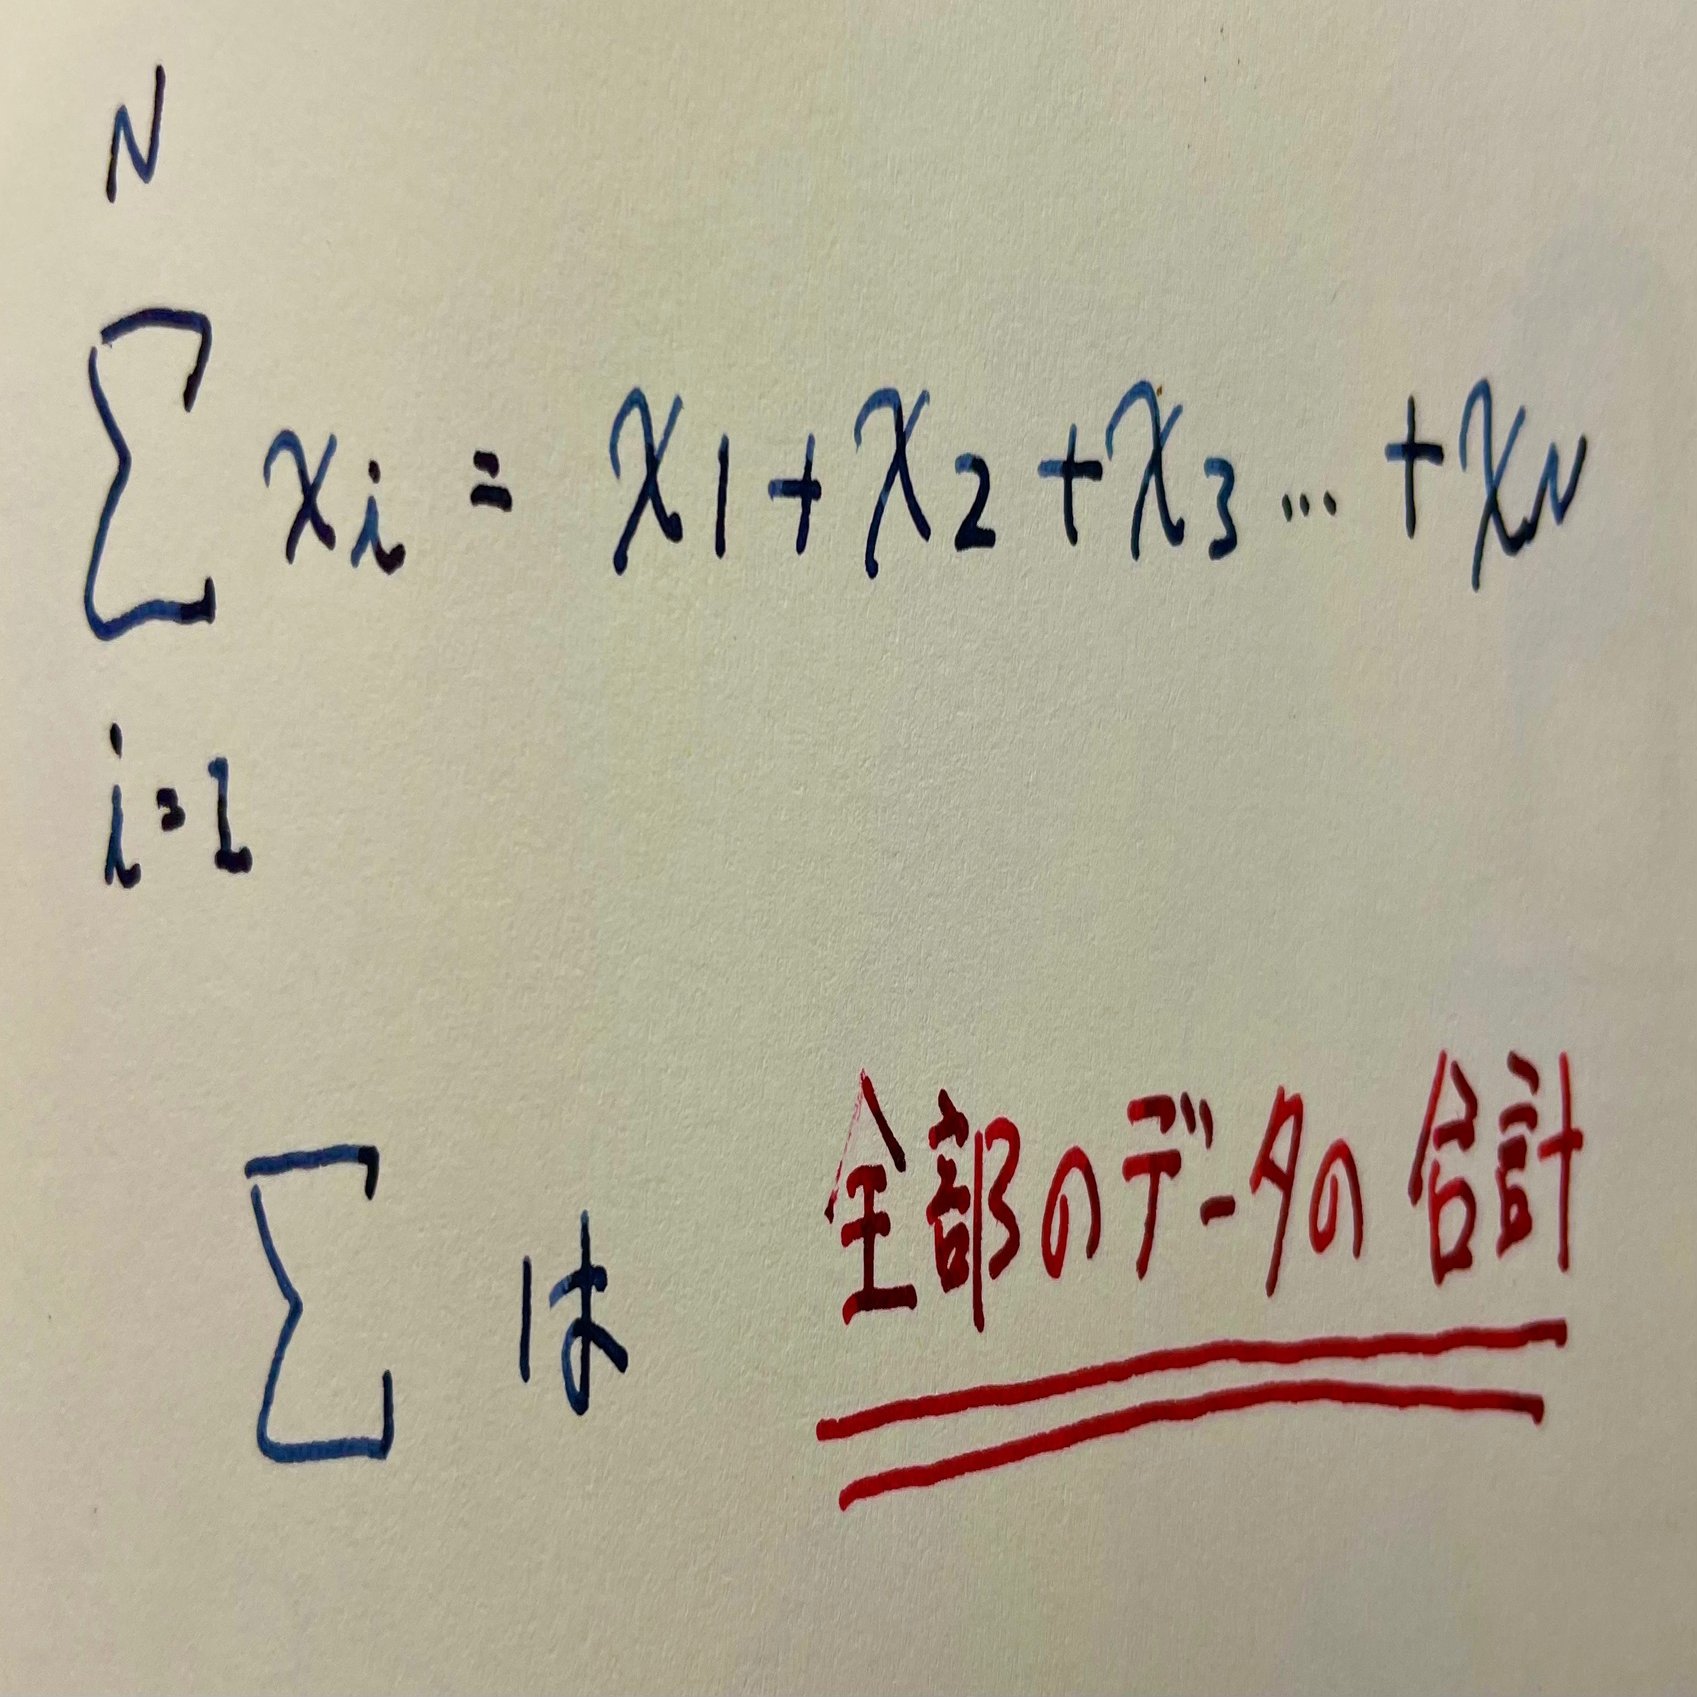 N
∑ xi = x1+x2+x3…+xN
i=1
∑ は 全部のデータの合計